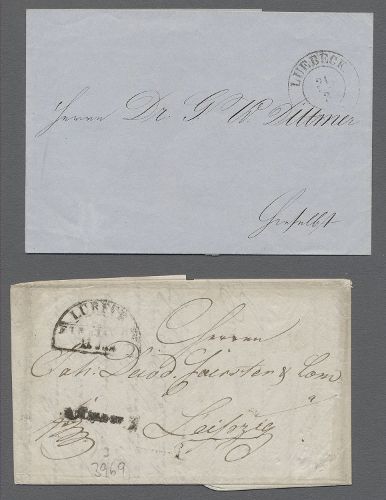 LUEBECK
21
7
Herrn Dr. G W. Dittmer
Hieselbst
LÜBECK
Herren
Joh. David Foerster & Com
Leipzig
3969